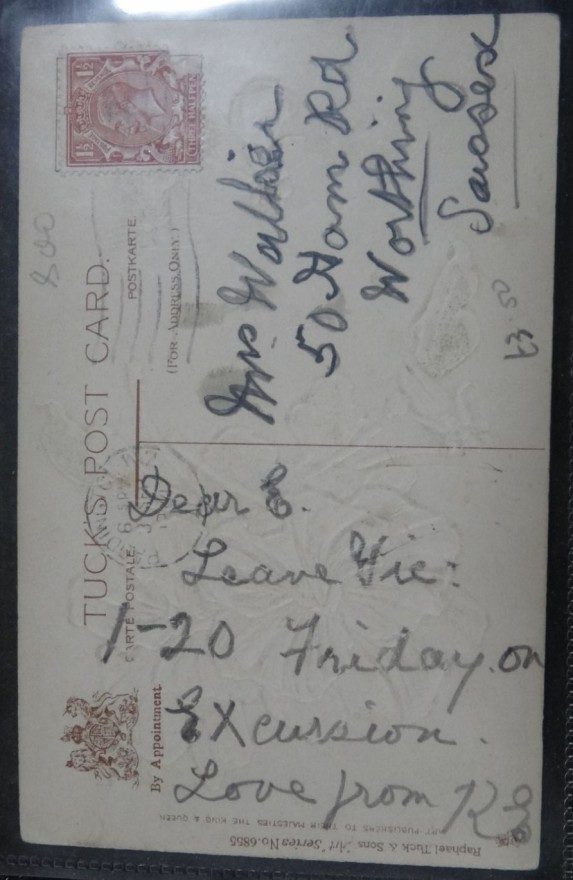 TUCK'S POST CARD.
CARTE POSTALE.
POSTKARTE
(FOR ADDRESS ONLY.)
1½ 1½
THREE HALFPENCE
800
Mrs Walker
50 Ham Rd
Worthing
Sussex
£3.50
Dear E.
Leave Vic:
1-20 Friday. on
Excursion.
Love from
By Appointment.
Raphael Tuck & Sons "Art" Series No. 6855
ART PUBLISHERS TO THEIR MAJESTIES THE KING & QUEEN